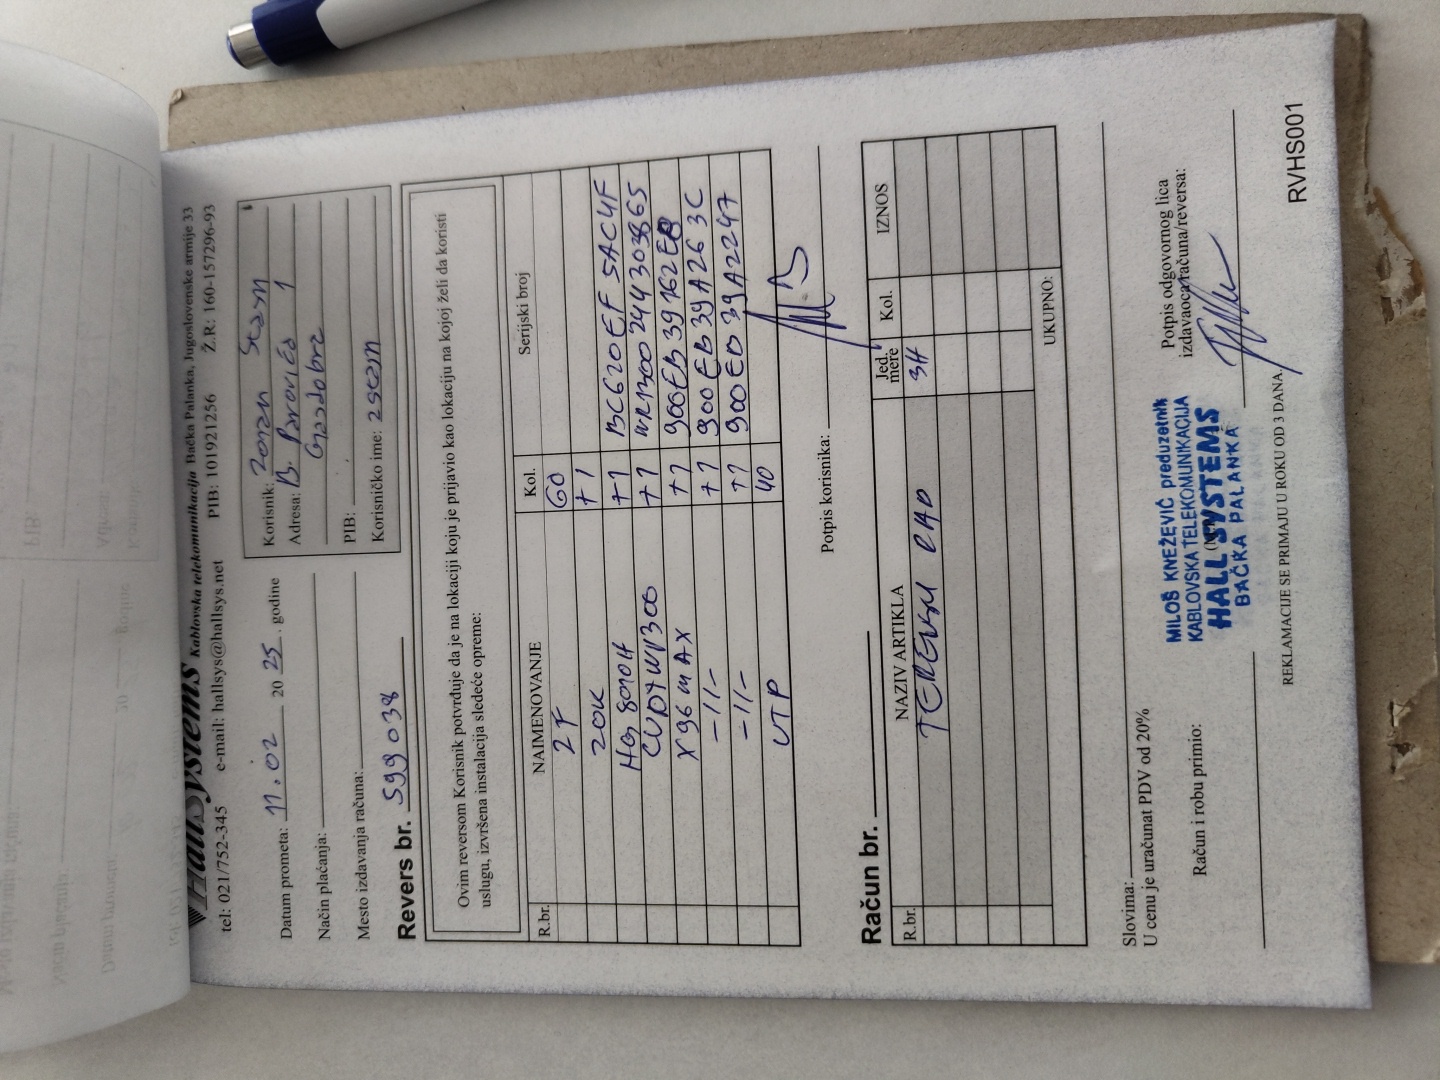 HallSystems Kablovska telekomunikacija Bačka Palanka, Jugoslovenske armije 33
tel: 021/752-345 e-mail: hallsys@hallsys.net PIB: 101921256 Ž.R: 160-157296-93
Datum prometa: 11.02 20 25. godine
Način plaćanja:
Mesto izdavanja računa:
Korisnik: Zoran
Adresa: B. Parovića 1
Gajdobra
PIB:
Korisničko ime:
Revers br. 599038
Ovim reversom Korisnik potvrđuje da je na lokaciji koju je prijavio kao lokaciju na kojoj želi da koristi
uslugu, izvršena instalacija sledeće opreme:
R.br. NAIMENOVANJE Kol. Serijski broj
2F 60
ZOK +1
HG8010H +1 BC620EF5AC4F
+1 WR1300 244303865
X96 MAX +1 900EB39162
-11- +1 900EB39A263C
-11- +1 900EB39A2247
UTP 40
Potpis korisnika:
Račun br.
R.br. NAZIV ARTIKLA Jed. mere Kol. IZNOS
TERENSKI RAD 3H
UKUPNO:
Slovima:
U cenu je uračunat PDV od 20%
Račun i robu primio:
MILOŠ KNEŽEVIĆ preduzetnik
KABLOVSKA TELEKOMUNIKACIJA
HALL SYSTEMS
BAČKA PALANKA
Potpis odgovornog lica
izdavaoca računa/reversa:
REKLAMACIJE SE PRIMAJU U ROKU OD 3 DANA.
RVHS001